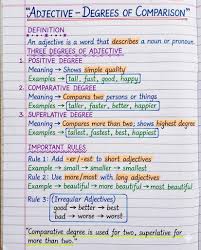 "ADJECTIVE – DEGREES OF COMPARISON"
DEFINITION
An adjective is a word that describes a noun or pronoun.
THREE DEGREES OF ADJECTIVE
1. POSITIVE DEGREE
Meaning → Shows simple quality
Examples → tall, fast, good, happy
2. COMPARATIVE DEGREE
Meaning → Compares two persons or things
Examples → taller, faster, better, happier
3. SUPERLATIVE DEGREE
Meaning → Compares more than two; shows highest degree
Examples → tallest, fastest, best, happiest
IMPORTANT RULES
Rule 1: Add -er / -est to short adjectives
Example → small → smaller → smallest
Rule 2: Use more/most with long adjectives
Example → beautiful → more beautiful → most beautiful
Rule 3: (Irregular Adjectives)
good → better → best
bad → worse → worst
"Comparative degree is used for two, superlative for
more than two."